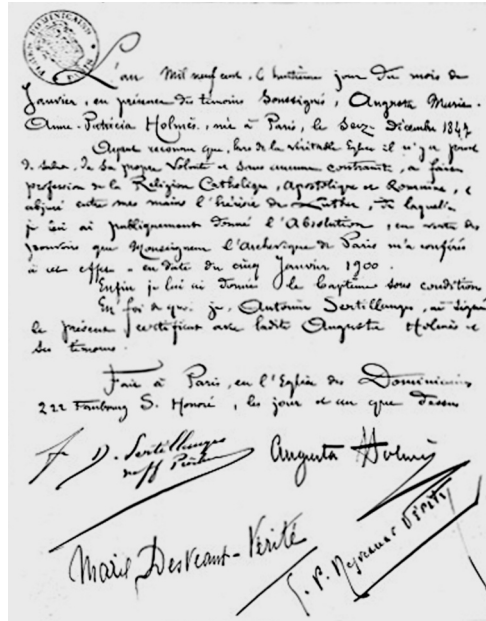 L'an Mil neuf cent, le huitième jour du mois de
Janvier, en présence des témoins soussignés, Augusta Marie-
Anne-Patricia Holmès, née à Paris, le seize Décembre 1847
Ayant reconnu que, hors de la véritable Eglise il n'y a point
de salut, de sa propre Volonté et sans aucune contrainte, a fait
profession de la Religion Catholique, Apostolique et Romaine, et
abjuré entre mes mains l'hérésie de Luther, de laquelle
je lui ai publiquement donné l'Absolution, en vertu des
pouvoirs que Monseigneur l'Archevêque de Paris m'a conférés
à cet effet en date du cinq Janvier 1900.
Enfin je lui ai donné le baptême sous condition
En foi de quoi je, Antonin Sertillanges, ai signé
le présent certificat avec ladite Augusta Holmès et
les témoins.
Fait à Paris, en l'Eglise des Dominicains
222 Faubourg S. Honoré, les jour et an que dessus
D. Sertillanges
Augusta Holmès
Marie Desveaux-Vérité